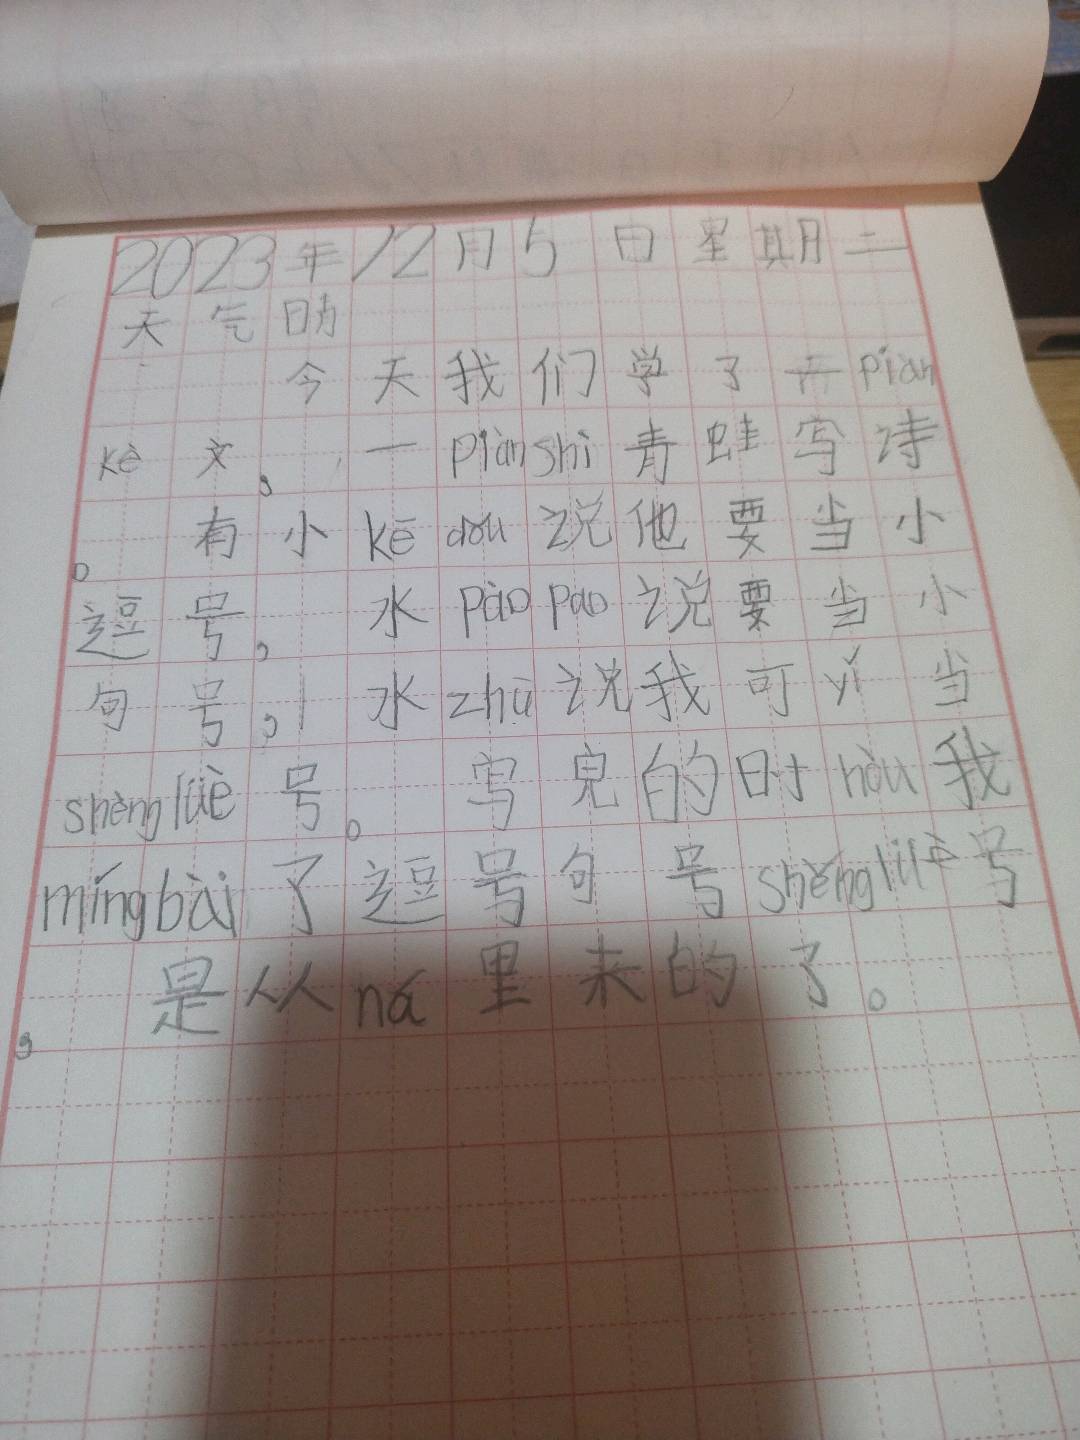 2023年12月5日星期二
天气晴
今天我们学了 piàn
kè文，一piàn shì青蛙写诗
。有小kē dǒu说他要当小
逗号，水pào pao说要当小
句号，水zhū说我可yǐ当
shěng lüè号。写完的时hòu我
míng bài了逗号句号shěng lüè号
，是从ná里来的了。